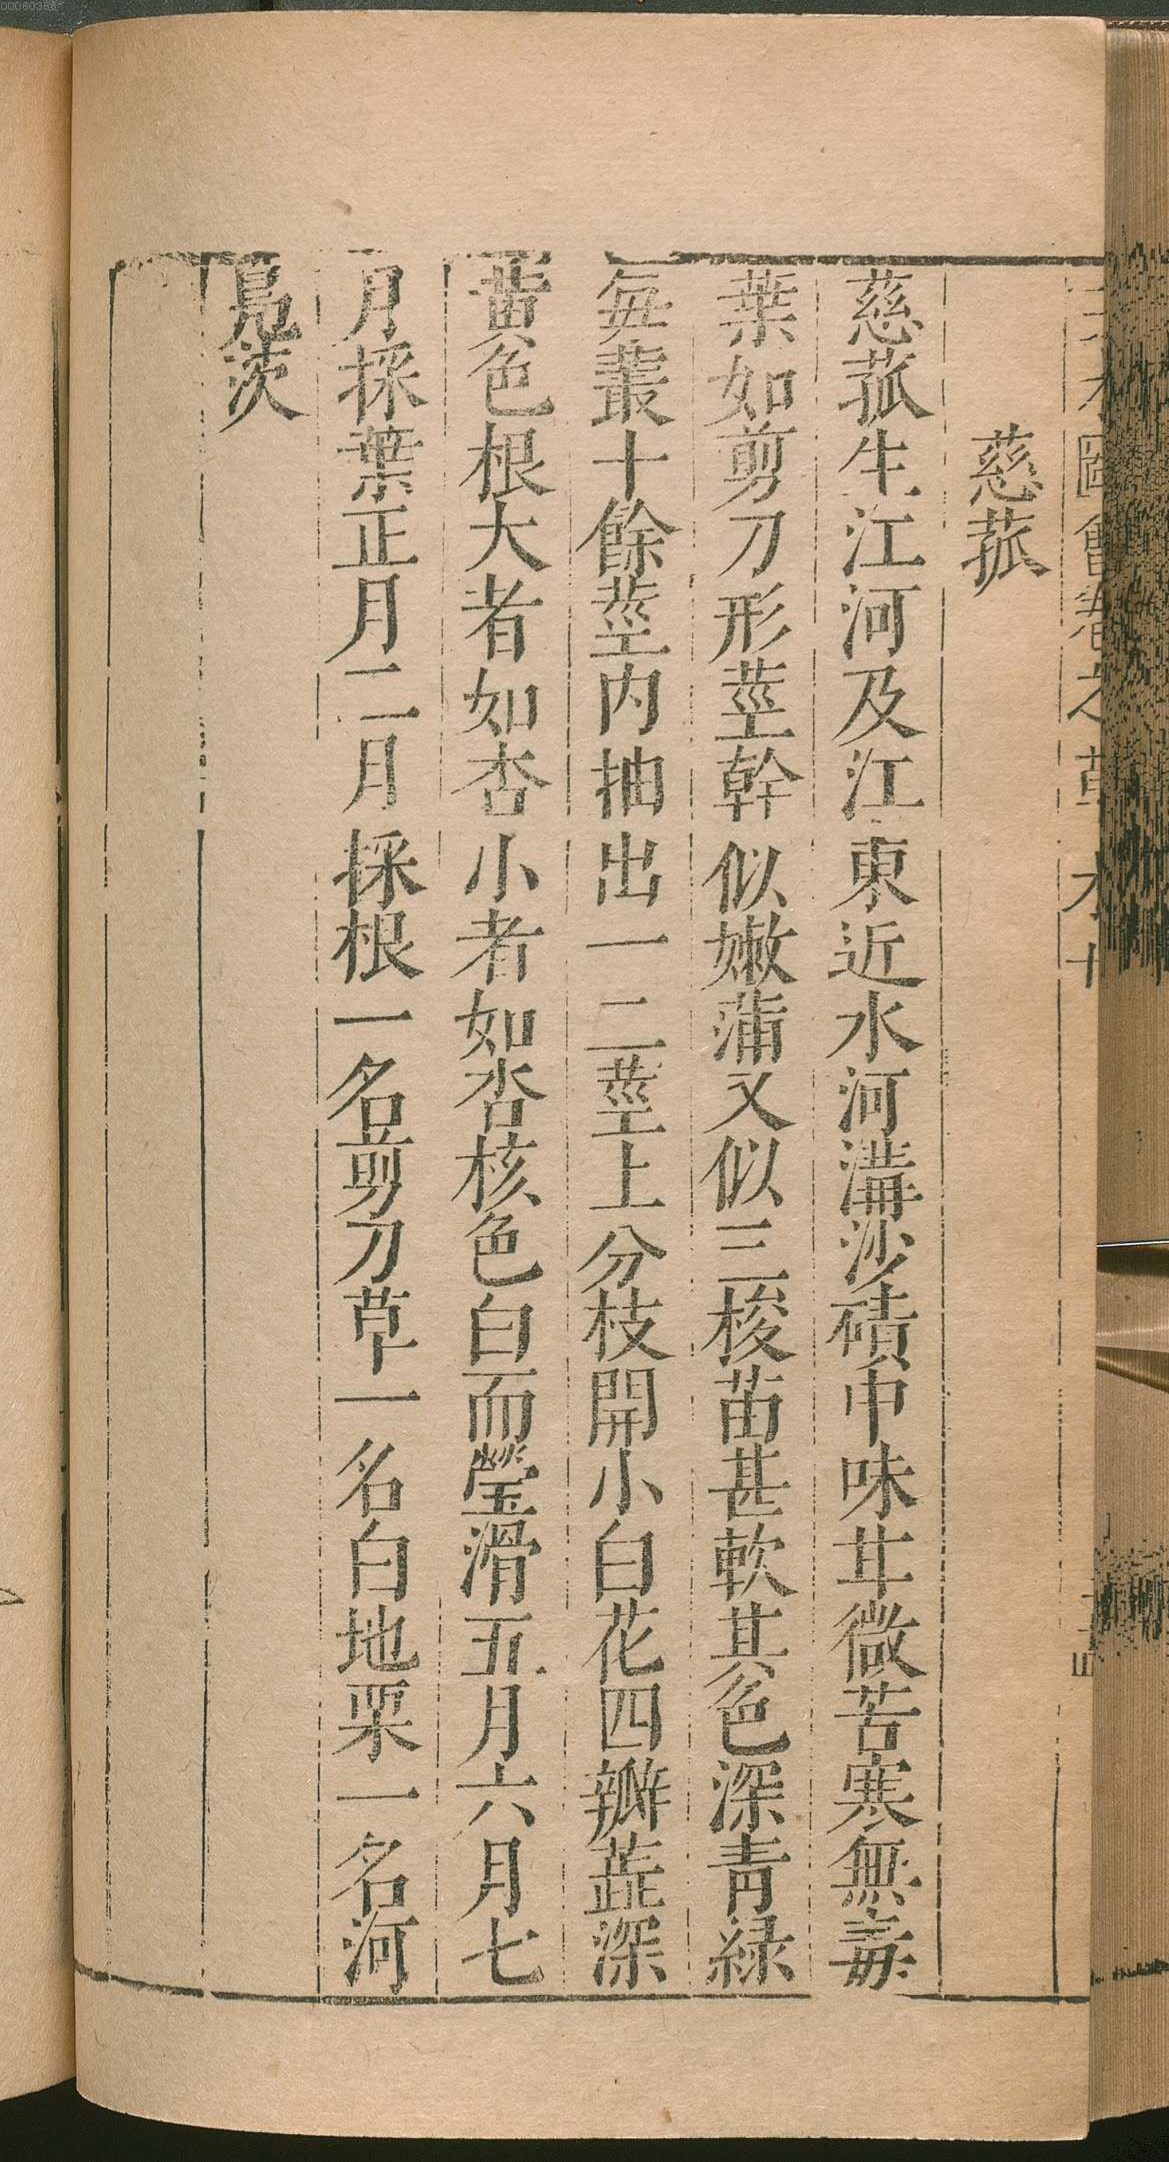 慈菰
慈菰生江河及江東近水河溝沙磧中味甘微苦寒無毒
葉如剪刀形莖幹似嫩蒲又似三梭苗甚軟其色深青緑
每叢十餘莖内抽出一二莖上分枝開小白花四瓣蕋深
黃色根大者如杏小者如杏核色白而瑩滑五月六月七
月採葉正月二月採根一名剪刀草一名白地栗一名河
鳧茨
00060388